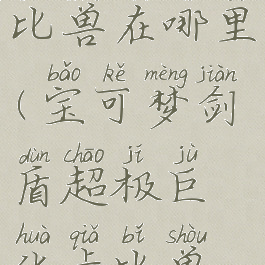 比兽在哪里
bǎo kě mèng jiàn
(宝可梦剑
dùn chāo jí jù
盾超极巨
huà qiǎ bǐ shòu
化卡比兽